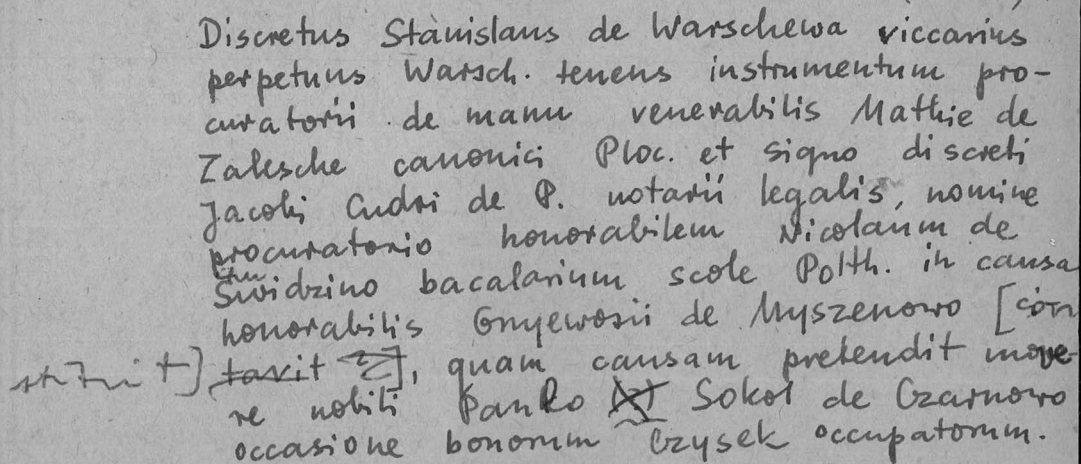 Discretus Stanislaus de Warschewa viccarius
perpetuus Warsch. tenens instrumentum pro-
curatorii de manu venerabilis Mathie de
Zalesche canonici Ploc. et signo discreti
Jacobi Cudri de P. notarii legalis, nomine
procuratorio honorabilem Nicolaum de
Swidzino bacalarium scole Polth. in causa
honorabilis Gnyewosii de Myszenowo [con
stituit] tavit, quam causam pretendit move-
re nobili Panko Sokol de Czarnowo
occasione bonorum Czysek occupatorum.